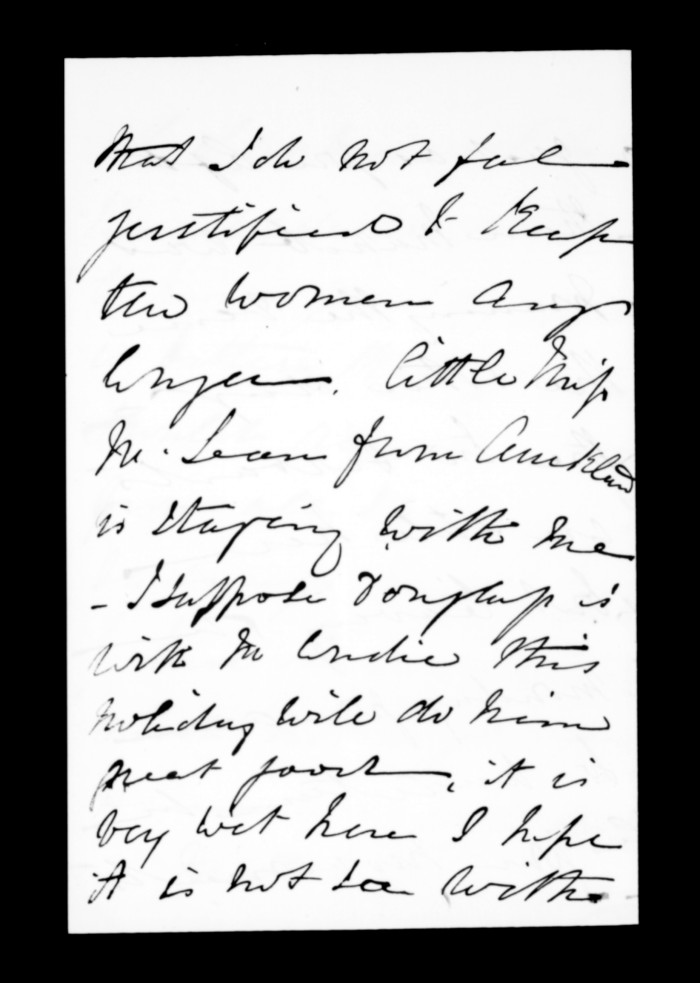 that I do not feel
justified to keep
the women any
longer. little Miss
Mc. Lean from Auckland
is staying with me
- I suppose Douglas is
with Mr this
holiday will do him
great good, it is
very wet here I hope
it is not so with